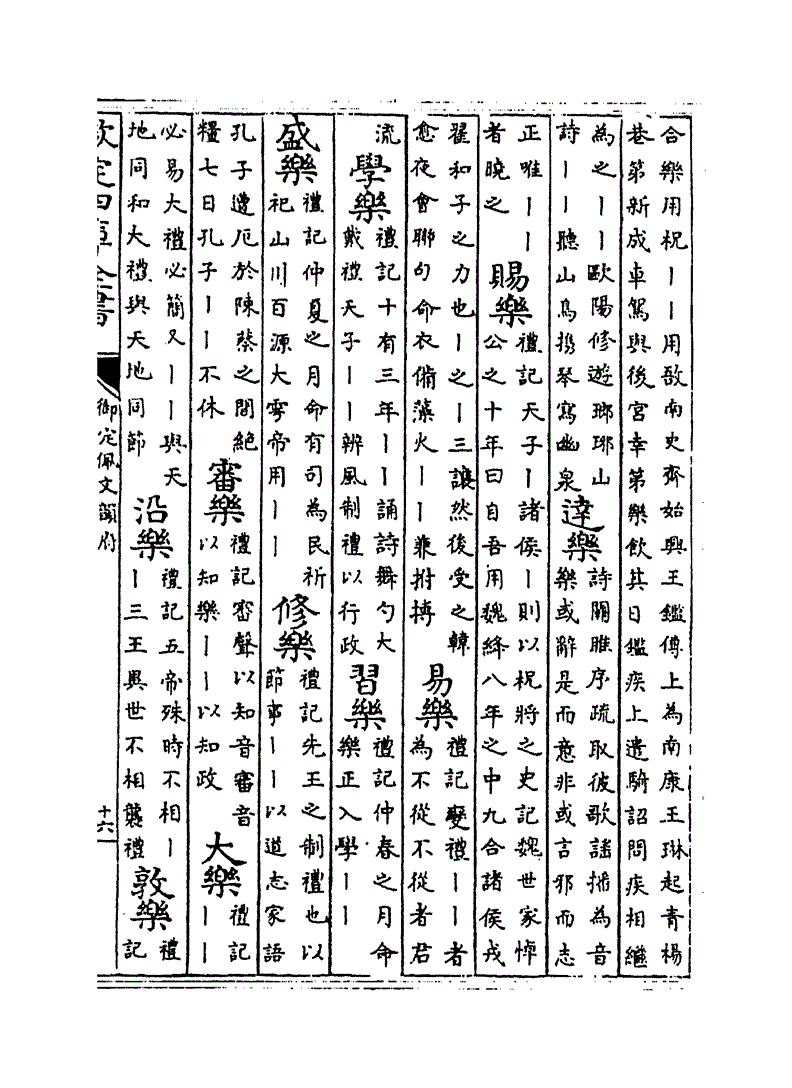 合樂用柷丨丨用敔南史齊始興王鑑傳上為南康王琳起青楊
巷第新成車駕與後宮幸第樂飲其日鑑疾上遣騎詔問疾相繼
為之丨丨歐陽修遊瑯琊山
詩丨丨聽山鳥携琴寫幽泉
達樂
詩關雎序疏取彼歌謡播為音
樂或辭是而意非或言邪而志
正唯丨丨
者曉之
賜樂
禮記天子丨諸侯丨則以柷將之史記魏世家悼
公之十年曰自吾用魏絳八年之中九合諸侯戎
翟和子之力也丨之丨三讓然後受之韓
愈夜會聯句命衣備藻火丨丨兼拊搏
易樂
禮記變禮丨丨者
為不從不從者君
流
學樂
禮記十有三年丨丨誦詩舞勺大
戴禮天子丨丨辨風制禮以行政
習樂
禮記仲春之月命
樂正入學丨丨
盛樂
禮記仲夏之月命有司為民祈
祀山川百源大雩帝用丨丨
修樂
禮記先王之制禮也以
節事丨丨以道志家語
孔子遭厄於陳蔡之間絶
糧七日孔子丨丨不休
審樂
禮記審聲以知音審音
以知樂丨丨以知政
大樂
禮記
丨丨
必易大禮必簡又丨丨與天
地同和大禮與天地同節
沿樂
禮記五帝殊時不相丨
丨三王異世不相襲禮
敦樂
禮
記
欽定四庫全書
御定佩文韻府
十六